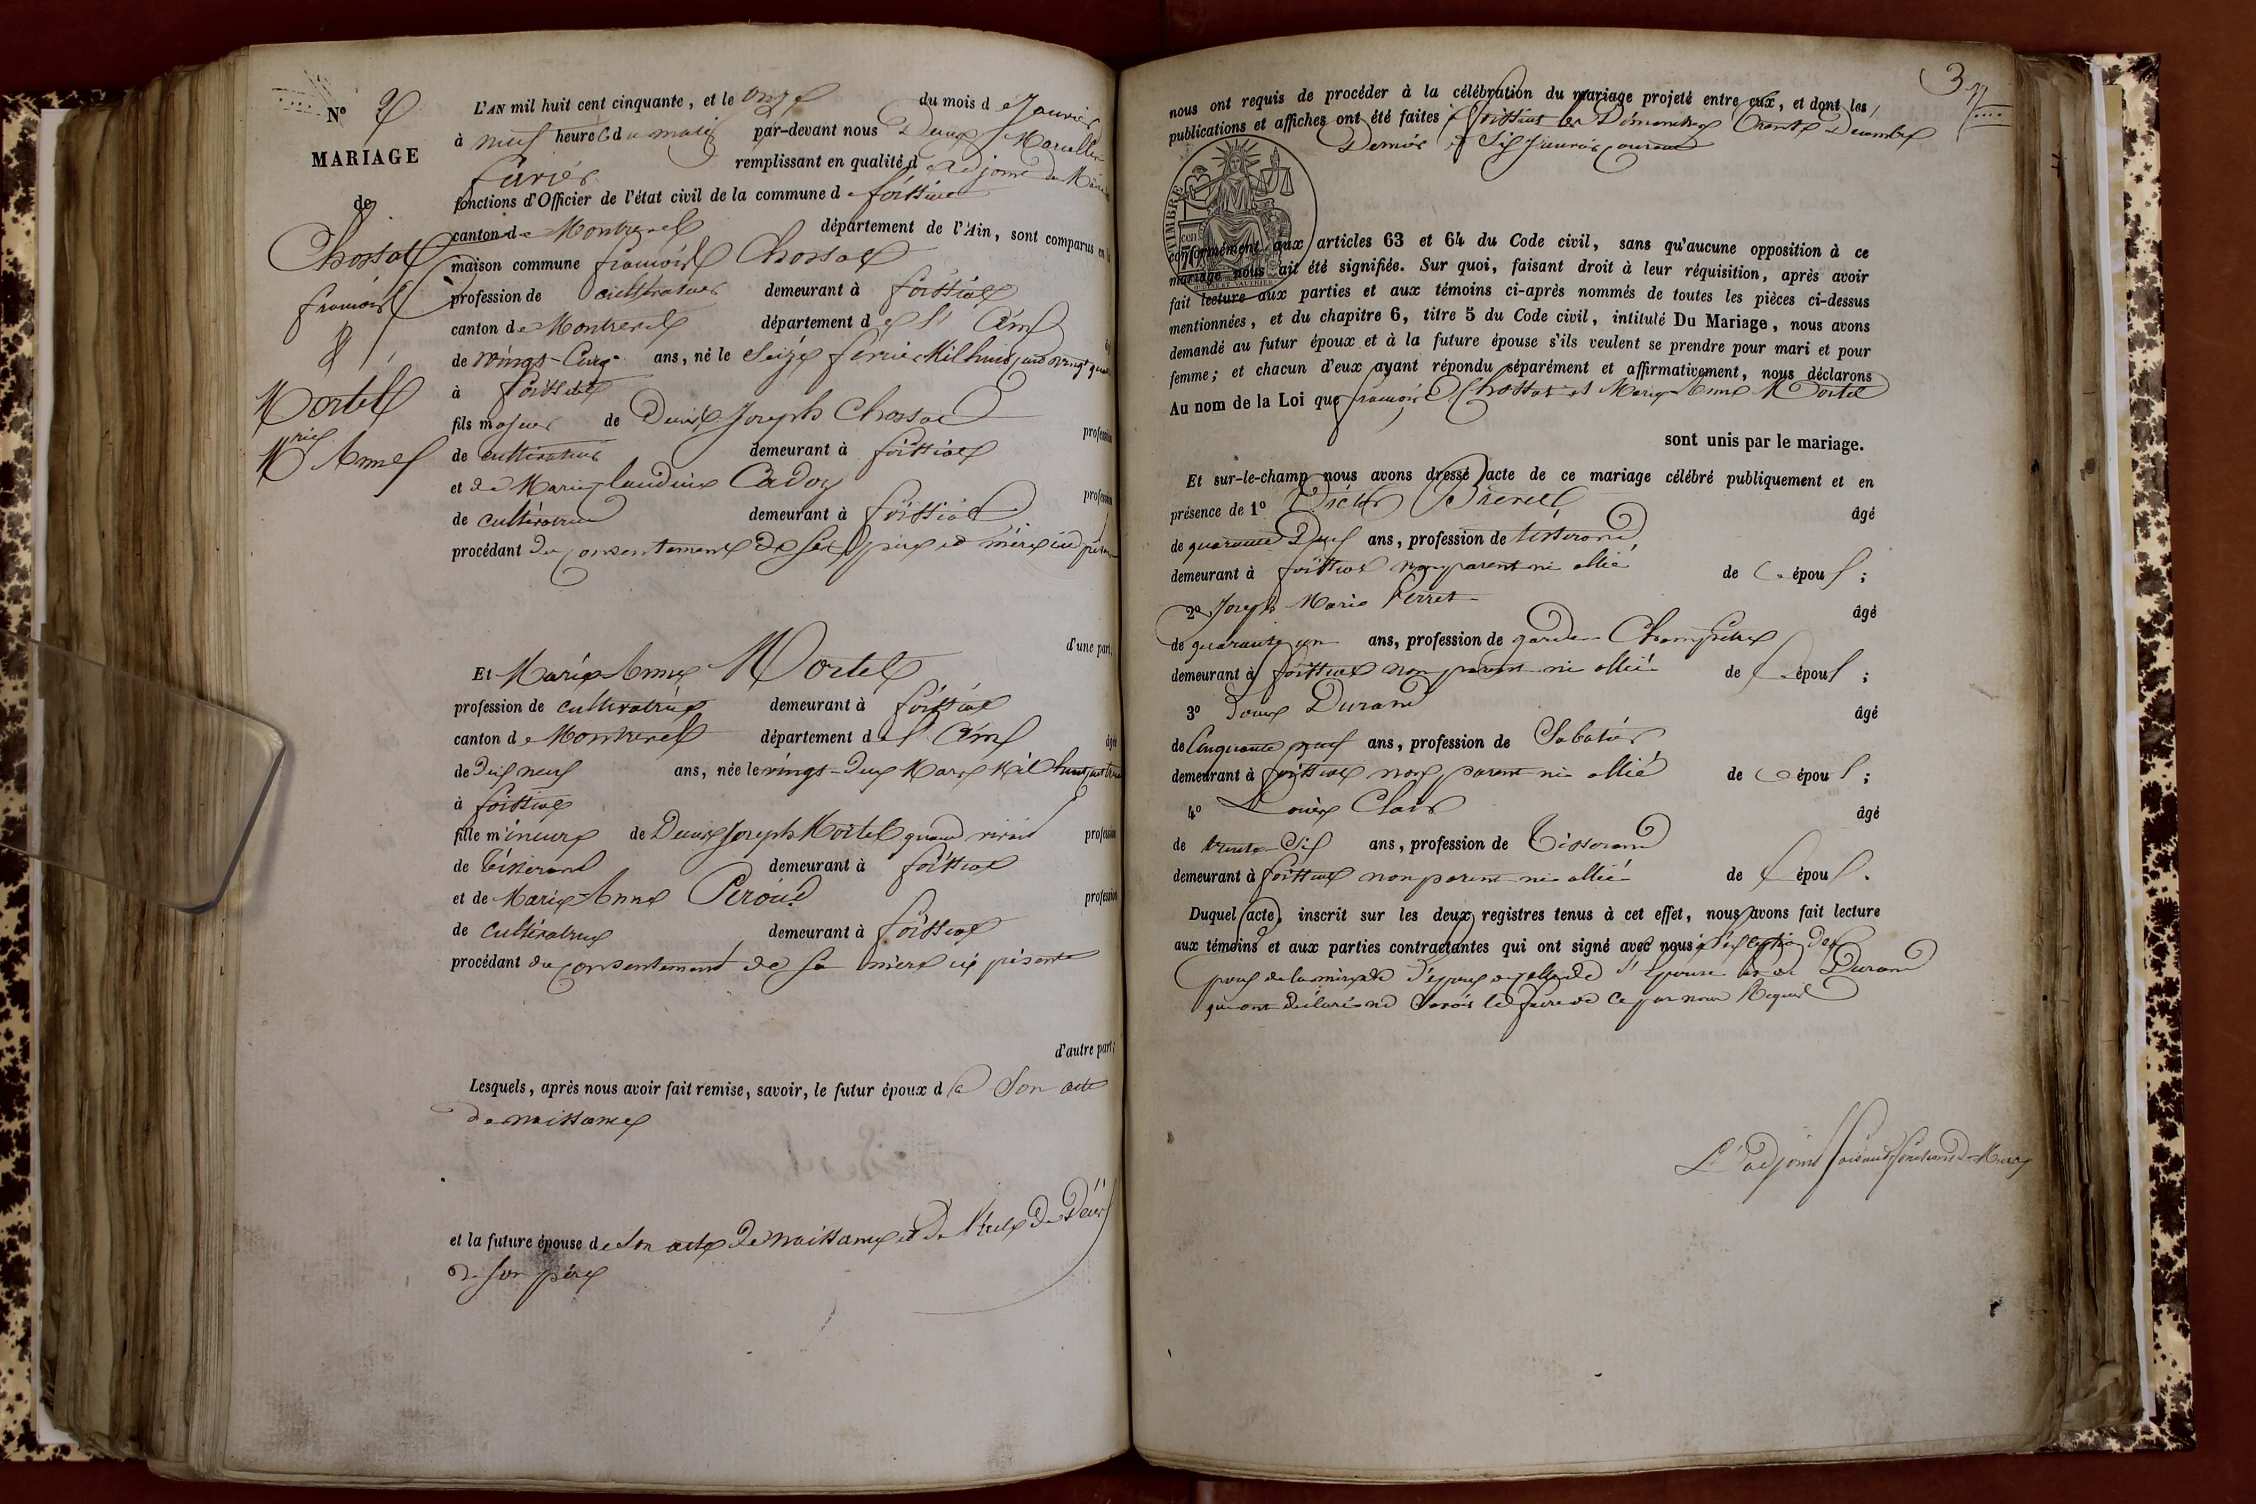 N° 2
MARIAGE
de
Chossat
françois
&
Mortel
Mrie Anne
L'AN mil huit cent cinquante, et le onze du mois de Janvier
à neuf heures du matin par-devant nous Denis Marcellin
fevrier remplissant en qualité d'adjoint du Maire
fonctions d'Officier de l'état civil de la commune de foissiat
canton de Montrevel département de l'Ain, sont comparus en la
maison commune françois Chossat
profession de cultivateur demeurant à foissiat
canton de Montrevel département de l'Ain
de vingt-cinq ans, né le seize février Mil huit cent vingt quatre
à foissiat
fils majeur de Denis Joseph Chossat profession
de cultivateur demeurant à foissiat
et de Marie Claudine Cadoz profession
de cultivatrice demeurant à foissiat
procédant du consentement de ses père et mère ici présents
d'une part;
Et Marie Anne Mortel
profession de cultivatrice demeurant à foissiat
canton de Montrevel département de l'Ain âgée
de dix neuf ans, née le vingt-deux Mars Mil huit cent trente
à foissiat
fille mineure de Denis Joseph Mortel quand vivait profession
de tisserand demeurant à foissiat
et de Marie Anne Peroud profession
de cultivatrice demeurant à foissiat
procédant du consentement de sa mère ici présente
d'autre part;
Lesquels, après nous avoir fait remise, savoir, le futur époux de Son acte
de naissance
et la future épouse de son acte de naissance et de celui de décès
de son père
3
nous ont requis de procéder à la célébration du mariage projeté entre eux, et dont les
publications et affiches ont été faites à foissiat les Dimanches trente Decembre
Dernier et Six Janvier courant
TIMBRE
conformément aux articles 63 et 64 du Code civil, sans qu'aucune opposition à ce
mariage nous ait été signifiée. Sur quoi, faisant droit à leur réquisition, après avoir
fait lecture aux parties et aux témoins ci-après nommés de toutes les pièces ci-dessus
mentionnées, et du chapitre 6, titre 5 du Code civil, intitulé Du Mariage, nous avons
demandé au futur époux et à la future épouse s'ils veulent se prendre pour mari et pour
femme; et chacun d'eux ayant répondu séparément et affirmativement, nous déclarons
Au nom de la Loi que françois Chossat et Marie Anne Mortel
sont unis par le mariage.
Et sur-le-champ nous avons dressé acte de ce mariage célébré publiquement et en
présence de 1° Victor âgé
de quarante Deux ans, profession de tisserand
demeurant à foissiat non parent ni allié de l'époux;
2° Joseph Marie Perret âgé
de quarante un ans, profession de garde Champêtre
demeurant à foissiat non parent ni allié de l'époux;
3° Durand âgé
de Cinquante neuf ans, profession de Sabotier
demeurant à foissiat non parent ni allié de l'époux;
4° Louis Clair âgé
de trente Six ans, profession de Tisserand
demeurant à foissiat non parent ni allié de l'époux.
Duquel acte, inscrit sur les deux registres tenus à cet effet, nous avons fait lecture
aux témoins et aux parties contractantes qui ont signé avec nous à l'exception des
époux de la mère de l'époux et celle de l'épouse et de Durand
qui ont déclaré ne savoir le faire de ce par nous Requis
L'adjoint faisant fonctions de Maire